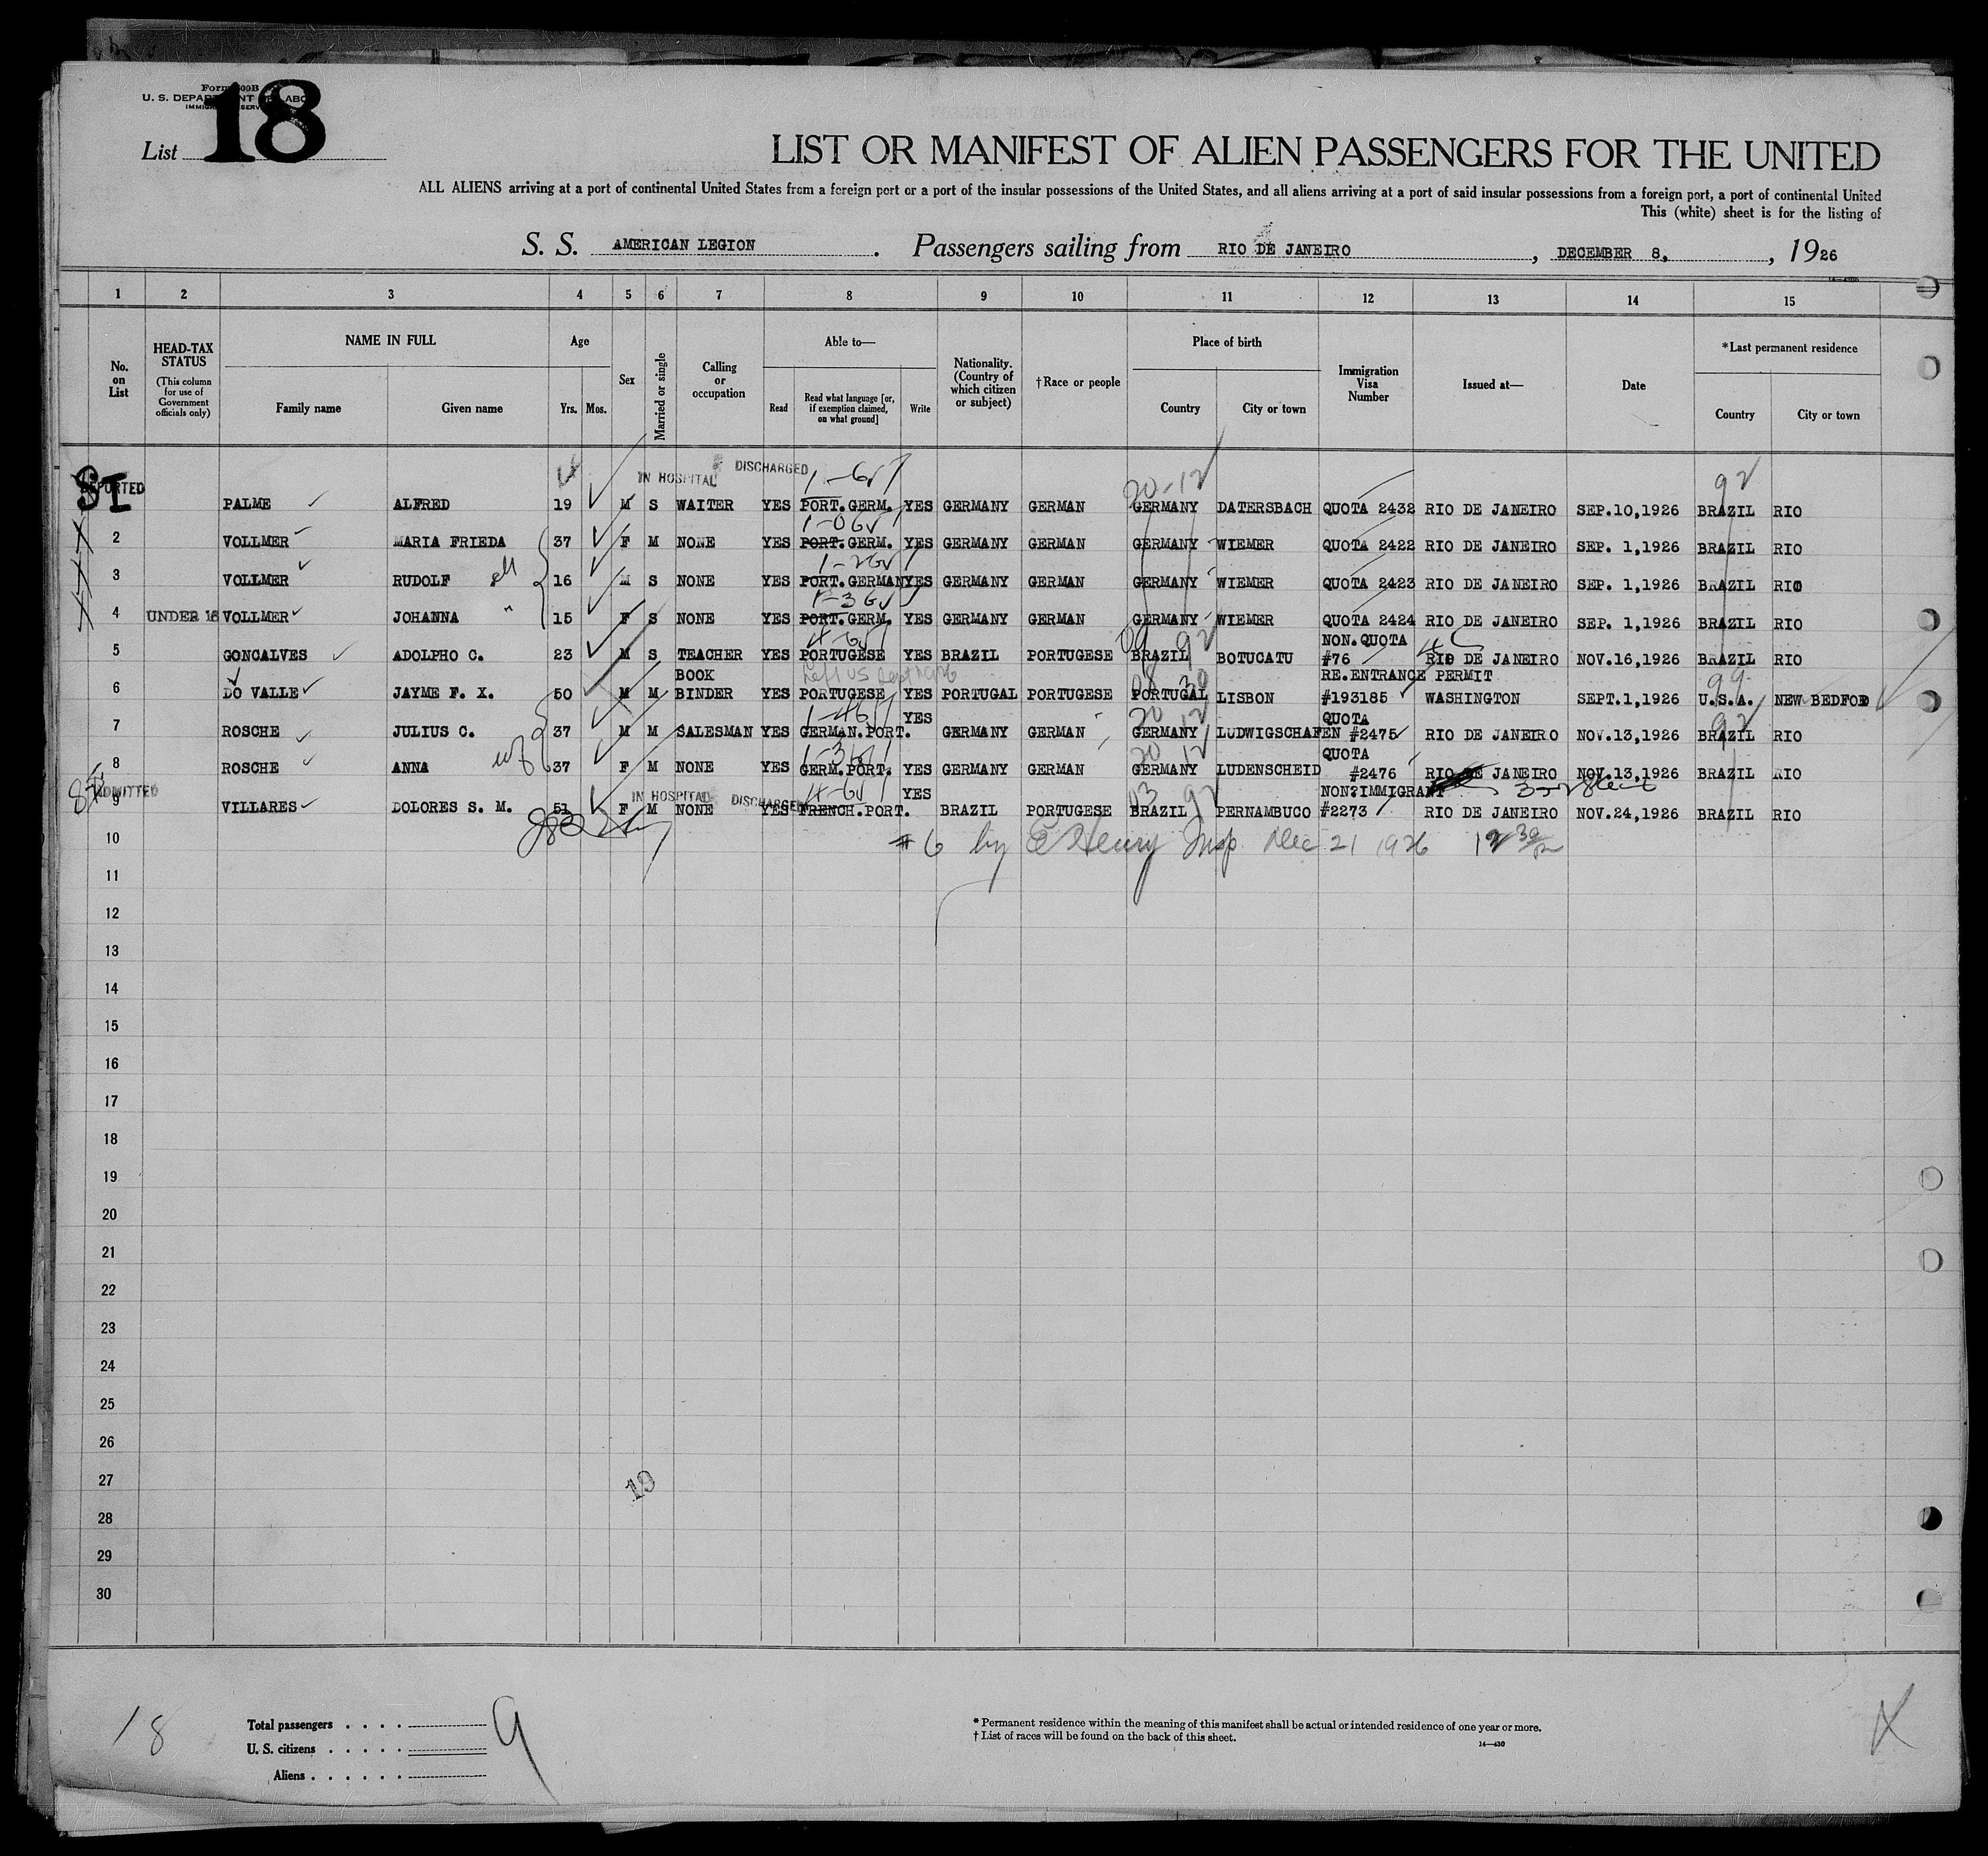 Form 500B
U. S. DEPARTMENT OF LABOR
IMMIGRATION SERVICE
18
List
LIST OR MANIFEST OF ALIEN PASSENGERS FOR THE UNITED
ALL ALIENS arriving at a port of continental United States from a foreign port or a port of the insular possessions of the United States, and all aliens arriving at a port of said insular possessions from a foreign port, a port of continental United
This (white) sheet is for the listing of
S. S. AMERICAN LEGION . Passengers sailing from RIO DE JANEIRO , DECEMBER 8, , 1926
1 2 3 4 5 6 7 8 9 10 11 12 13 14 15
No. on List
HEAD-TAX STATUS
(This column for use of Government officials only)
NAME IN FULL
Family name
Given name
Age
Yrs.
Mos.
Sex
Married or single
Calling or occupation
Able to—
Read
Read what language [or, if exemption claimed, on what ground]
Write
Nationality. (Country of which citizen or subject)
†Race or people
Place of birth
Country
City or town
Immigration Visa Number
Issued at—
Date
*Last permanent residence
Country
City or town
SI
IN HOSPITAL DISCHARGED 20-12 92
PALME ALFRED 19 M S WAITER YES PORT. GERM. YES GERMANY GERMAN GERMANY DATERSBACH QUOTA 2432 RIO DE JANEIRO SEP.10,1926 BRAZIL RIO
2 VOLLMER MARIA FRIEDA 37 F M NONE YES PORT. GERM. YES GERMANY GERMAN GERMANY WIEMER QUOTA 2422 RIO DE JANEIRO SEP. 1,1926 BRAZIL RIO
3 VOLLMER RUDOLF 16 M S NONE YES PORT. GERMAN YES GERMANY GERMAN GERMANY WIEMER QUOTA 2423 RIO DE JANEIRO SEP. 1,1926 BRAZIL RIO
4 UNDER 16 VOLLMER JOHANNA " 15 F S NONE YES PORT. GERM. YES GERMANY GERMAN GERMANY WIEMER QUOTA 2424 RIO DE JANEIRO SEP. 1,1926 BRAZIL RIO
92 NON.QUOTA
5 GONCALVES ADOLPHO C. 23 M S TEACHER YES PORTUGESE YES BRAZIL PORTUGESE BRAZIL BOTUCATU #76 RIO DE JANEIRO NOV.16,1926 BRAZIL RIO
BOOK Left US Sept 1926 RE.ENTRANCE PERMIT 99
6 DO VALLE JAYME F. X. 50 M M BINDER YES PORTUGESE YES PORTUGAL PORTUGESE PORTUGAL LISBON #193185 WASHINGTON SEPT.1,1926 U.S.A. NEW BEDFOD
YES 20 12 QUOTA 92
7 ROSCHE JULIUS C. 37 M M SALESMAN YES GERMAN.PORT. GERMANY GERMAN GERMANY LUDWIGSCHAFEN #2475 RIO DE JANEIRO NOV.13,1926 BRAZIL RIO
20 12 QUOTA
8 ROSCHE wf ANNA 37 F M NONE YES GERM.PORT. YES GERMANY GERMAN GERMANY LUDENSCHEID #2476 RIO DE JANEIRO NOV.13,1926 BRAZIL RIO
ADMITTED IN HOSPITAL DISCHARGED YES 03 92 NON?IMMIGRANT
9 VILLARES DOLORES S. M. 51 F M NONE YES FRENCH.PORT. BRAZIL PORTUGESE BRAZIL PERNAMBUCO #2273 RIO DE JANEIRO NOV.24,1926 BRAZIL RIO
10 #6 by E Henry Insp Dec 21 1926
11
12
13
14
15
16
17
18
19
20
21
22
23
24
25
26
27
19
28
29
30
18
Total passengers . . . . 9
U. S. citizens . . . . .
Aliens . . . . . .
* Permanent residence within the meaning of this manifest shall be actual or intended residence of one year or more.
† List of races will be found on the back of this sheet.
14—430
X